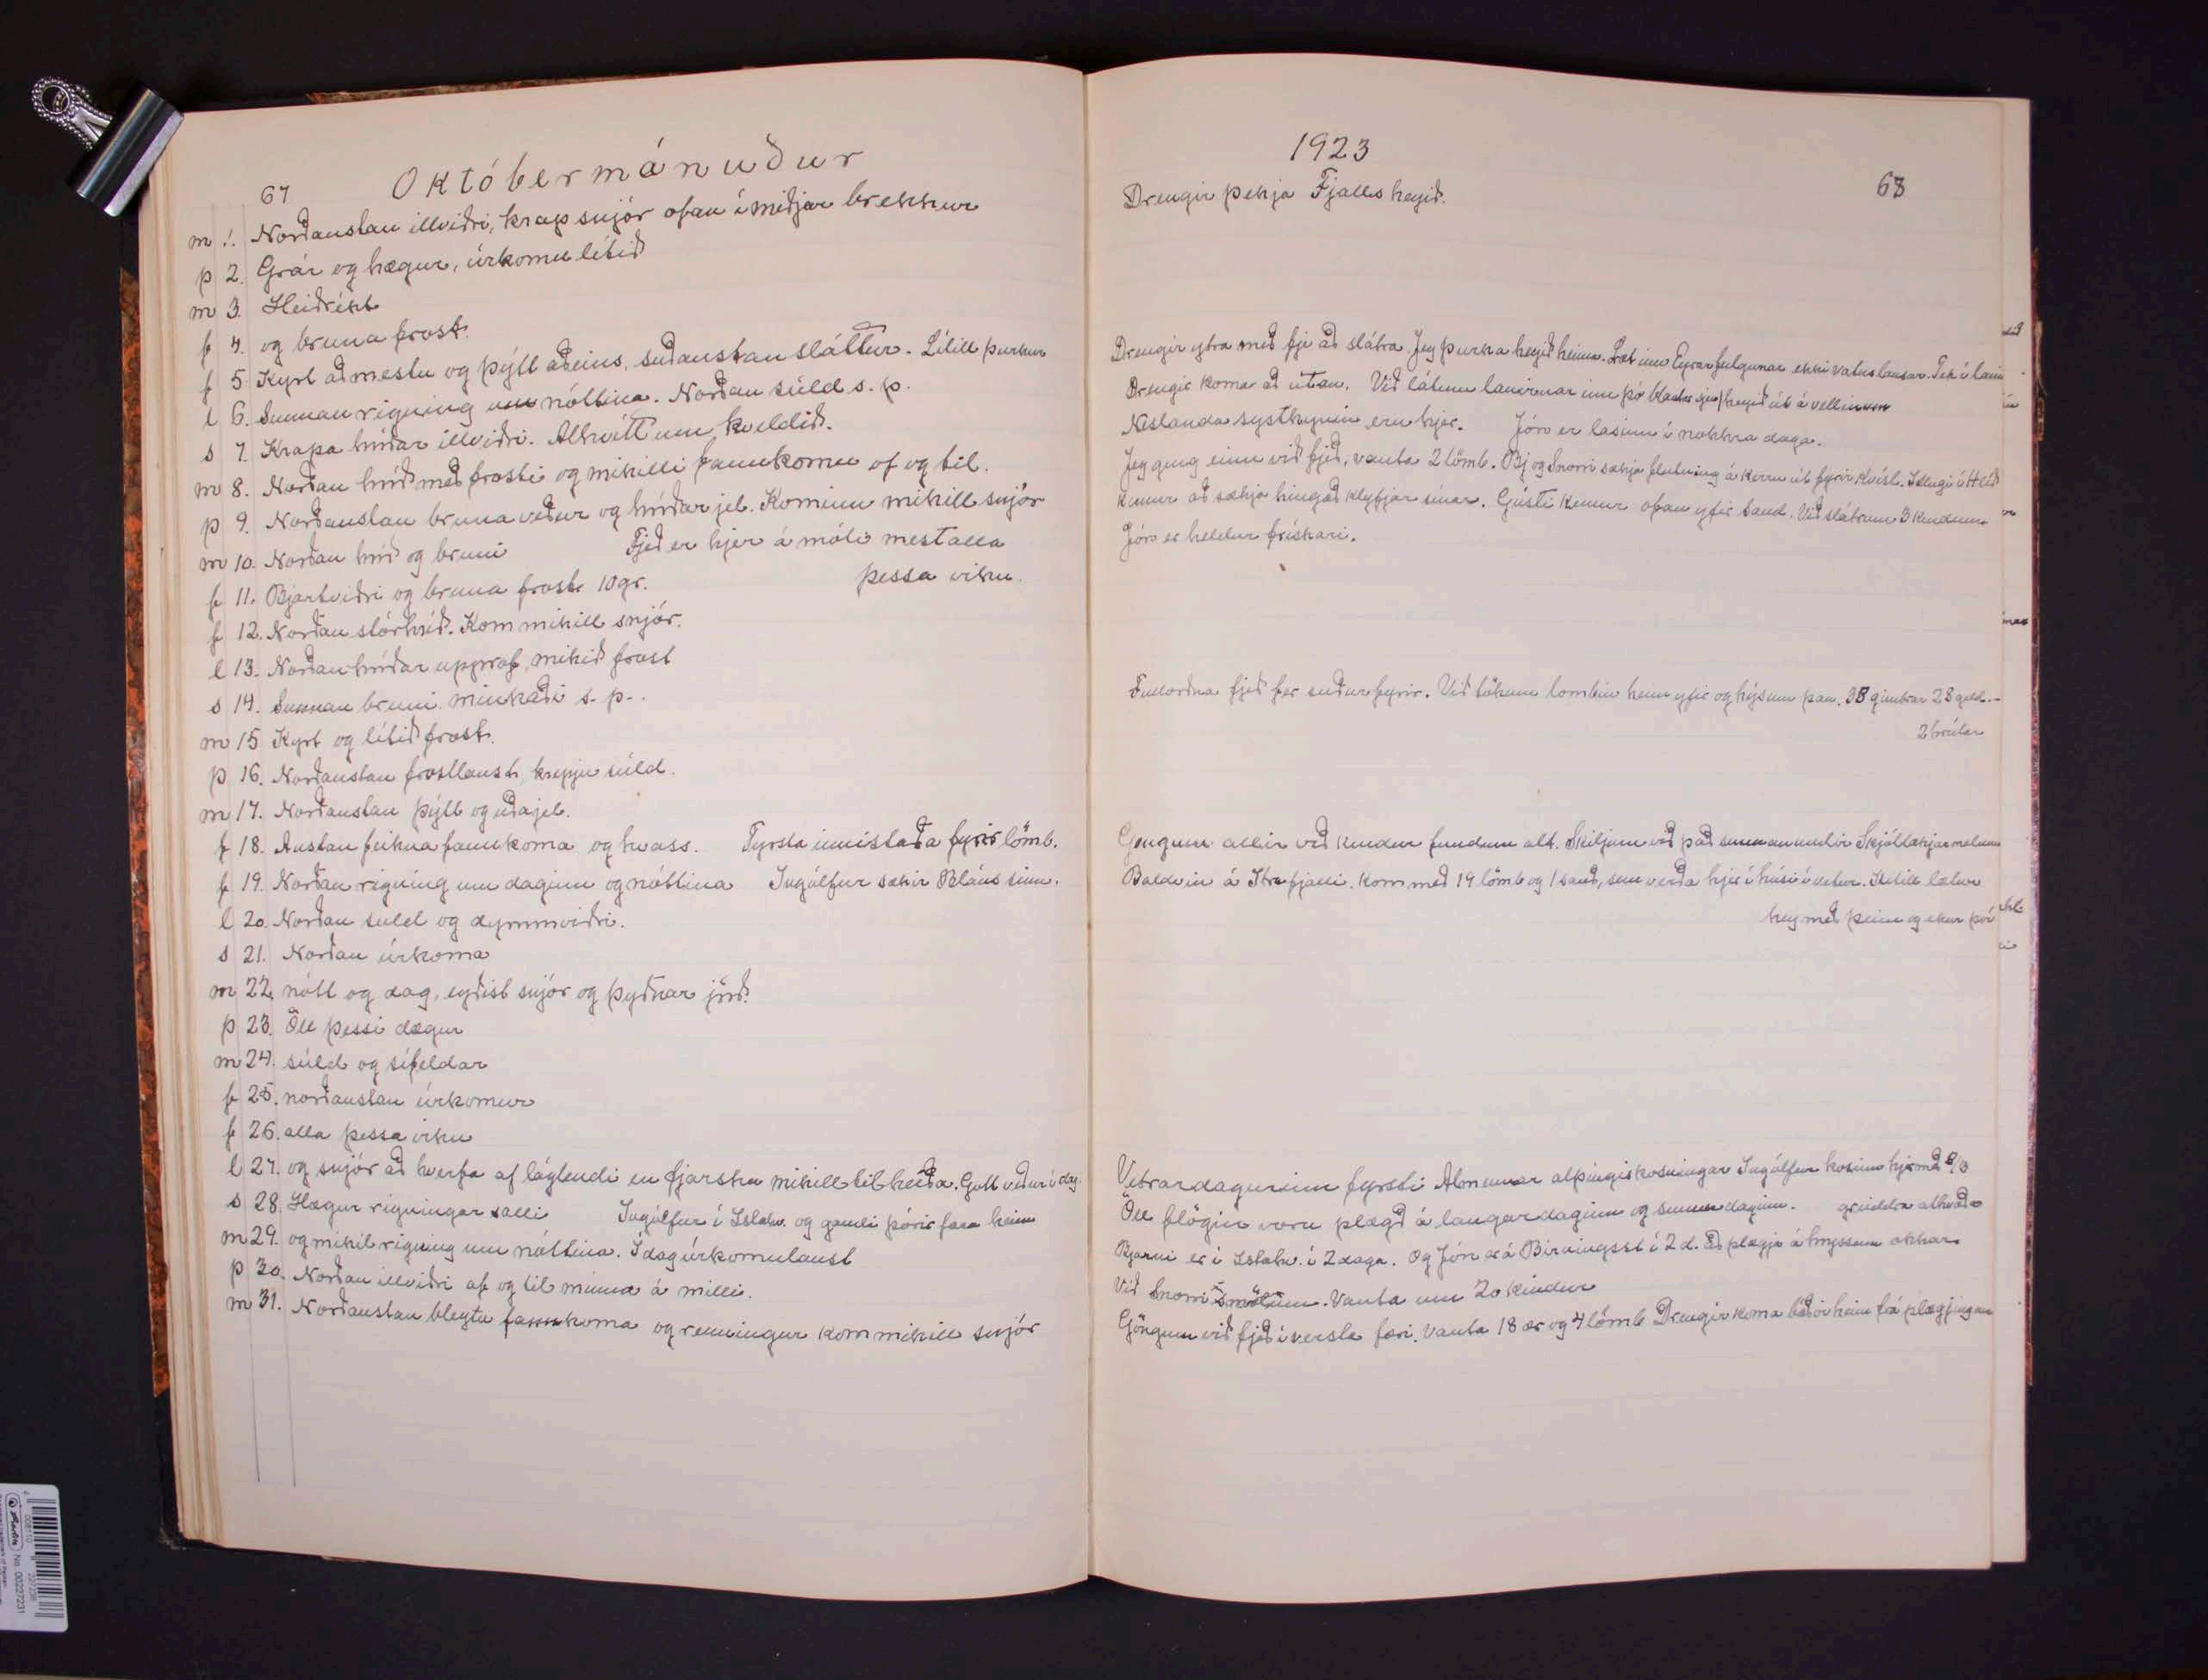 Októbermánuður
67
m 1. Norðaustan illviðri, krapsnjór ofan í miðjar brekkur
þ 2. Grár og hægur, úrkomulítið
m 3. Heiðríkt
f 4. og bruna frost.
f 5 Kyrt að mestu og þýtt aðeins, suðaustan sláttur. Lítill þurkur
l 6. Sunnan rigning um nóttina. Norðan súld s. p.
s 7. Krapa hríðar illviðri. Alhvítt um kveldið.
m 8. Norðan hríð með frosti og mikilli fannkomu af og til.
þ 9. Norðaustan bruna veður og hríðar jel. Kominn mikill snjór
m 10. Norðan hríð og bruni Fjeð er hjer á móti mestalla
f 11. Bjartviðri og bruna frost 10gr. þessa viku.
f 12. Norðan stórhríð. Kom mikill snjór.
l 13. Norðan hríðar upprof, mikið frost
s 14. Sunnan bruni minkaði s. p..
m 15 Kyrt og lítið frost.
þ 16. Norðaustan frostlaust, krepju súld.
m 17. Norðaustan þýtt og úðajel.
f 18. Austan feikna fannkoma og hvass. Fyrsta innistaða fyrir lömb.
f 19. Norðan rigning um daginn og nóttina Ingólfur sækir Bláus sinn.
l 20. Norðan súld og dymmviðri.
s 21. Norðan úrkoma
m 22. nótt og dag, eyðist snjór og þyðnar jörð.
þ 23. Öll þessi dægur
m 24. súld og sífeldar
f 25. norðaustan úrkomur
f 26. alla þessa viku
l 27. og snjór að hverfa af láglendi en fjarska mikill til heiða. Gott veður í dag.
s 28. Hægur rigningar salli Ingólfur í Íslahv. og gamli Þórir fara heim
m 29. og mikil rigning um nóttina. Í dag úrkomulaust
þ 30. Norðan illviðri af og til minna á milli.
m 31. Norðaustan bleytu fannkoma og renningur kom mikill snjór
1923
68
Drengir þekja Fjalls heyið.
Drengir ytra með fje að slátra. Jeg þurka heyið heima. Læt inn ekki vatnslausar. Tek í
Drengir koma að utan. Við látum inn þó heyið út á vellinum
Neslanda systkynin eru hjer. Jón er lasinn í nokkra daga.
Jeg geng einn við fjeð, vanta 2 lömb. Bj og Snorri sækja flutning á kerru út fyrir Kvísl. Illugi í
kemur að sækja hingað klyfjar sínar. Gústi kemur ofan yfir Sand. Við slátrum 3 kindum
Jón er heldur frískari.
Fullorðna fjeð fer suður fyrir. Við tökum lömbin heim yfir og hýsum þau. 38 gimbrar 28 geld.
2 hrútar
Göngum allir við kindur fundum alt. Skiljum við það sunnan undir
Baldvin á kom með 19 lömb og 1 sauð, sem verða hjer í húsi í vetur. Ketill lætur
hey með þeim og ekur því
Vetrardagurinn fyrsti Almennar alþingiskosningar Ingólfur kosinn
Öll flögin voru plægð á laugardaginn og sunnudaginn. greidda atkvæða
Bjarni er í Íslahv. í 2 daga. Og Jón er á Birningsst í 2 d. að plægja á hryssum okkar
Við Snorri smölum. Vanta um 20 kindur
Göngum við fjeð í versta færi. Vanta 18 ær og 4 lömb Drengir koma báðir heim frá plægjingum